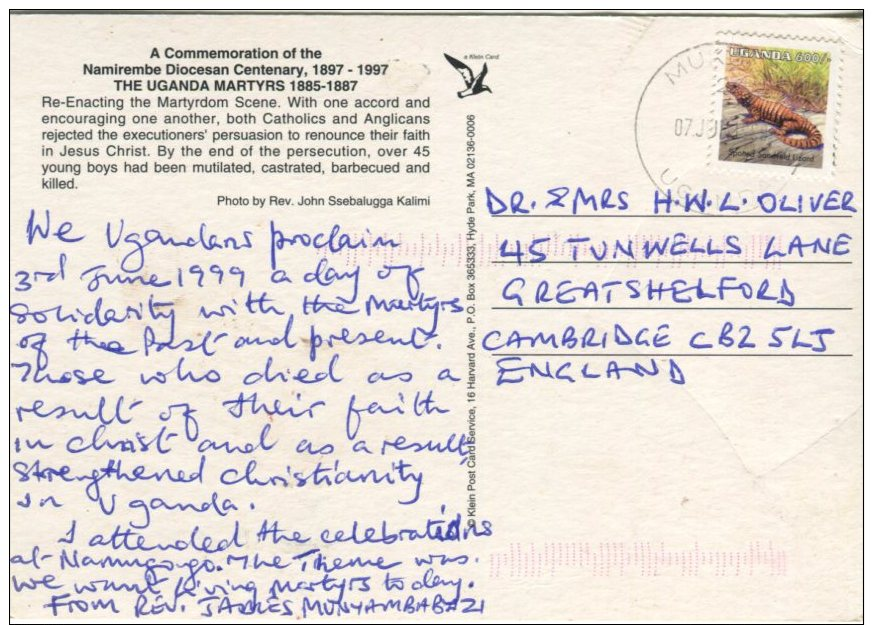 A Commemoration of the
Namirembe Diocesan Centenary, 1897 - 1997
THE UGANDA MARTYRS 1885-1887
Re-Enacting the Martyrdom Scene. With one accord and
encouraging one another, both Catholics and Anglicans
rejected the executioners' persuasion to renounce their faith
in Jesus Christ. By the end of the persecution, over 45
young boys had been mutilated, castrated, barbecued and
killed.
Photo by Rev. John Ssebalugga Kalimi
We Ugandans proclaim
3rd June 1999 a day of
Solidarity with the Martyrs
of the Past and present.
Those who died as a
result of their faith
in Christ and as a result
strengthened Christianity
in Uganda.
I attended the celebrations
at Namugongo. The Theme was.
We want living martyrs today.
FROM REV. JAMES MUNYAMBABAZI
a Klein Card
© Klein Post Card Service, 16 Harvard Ave., P.O. Box 365333, Hyde Park, MA 02136-0006
UGANDA 600/-
Spotted Sandveld Lizard
DR. & MRS H.W.L. OLIVER
45 TUNWELLS LANE
GREATSHELFORD
CAMBRIDGE CB2 5LJ
ENGLAND